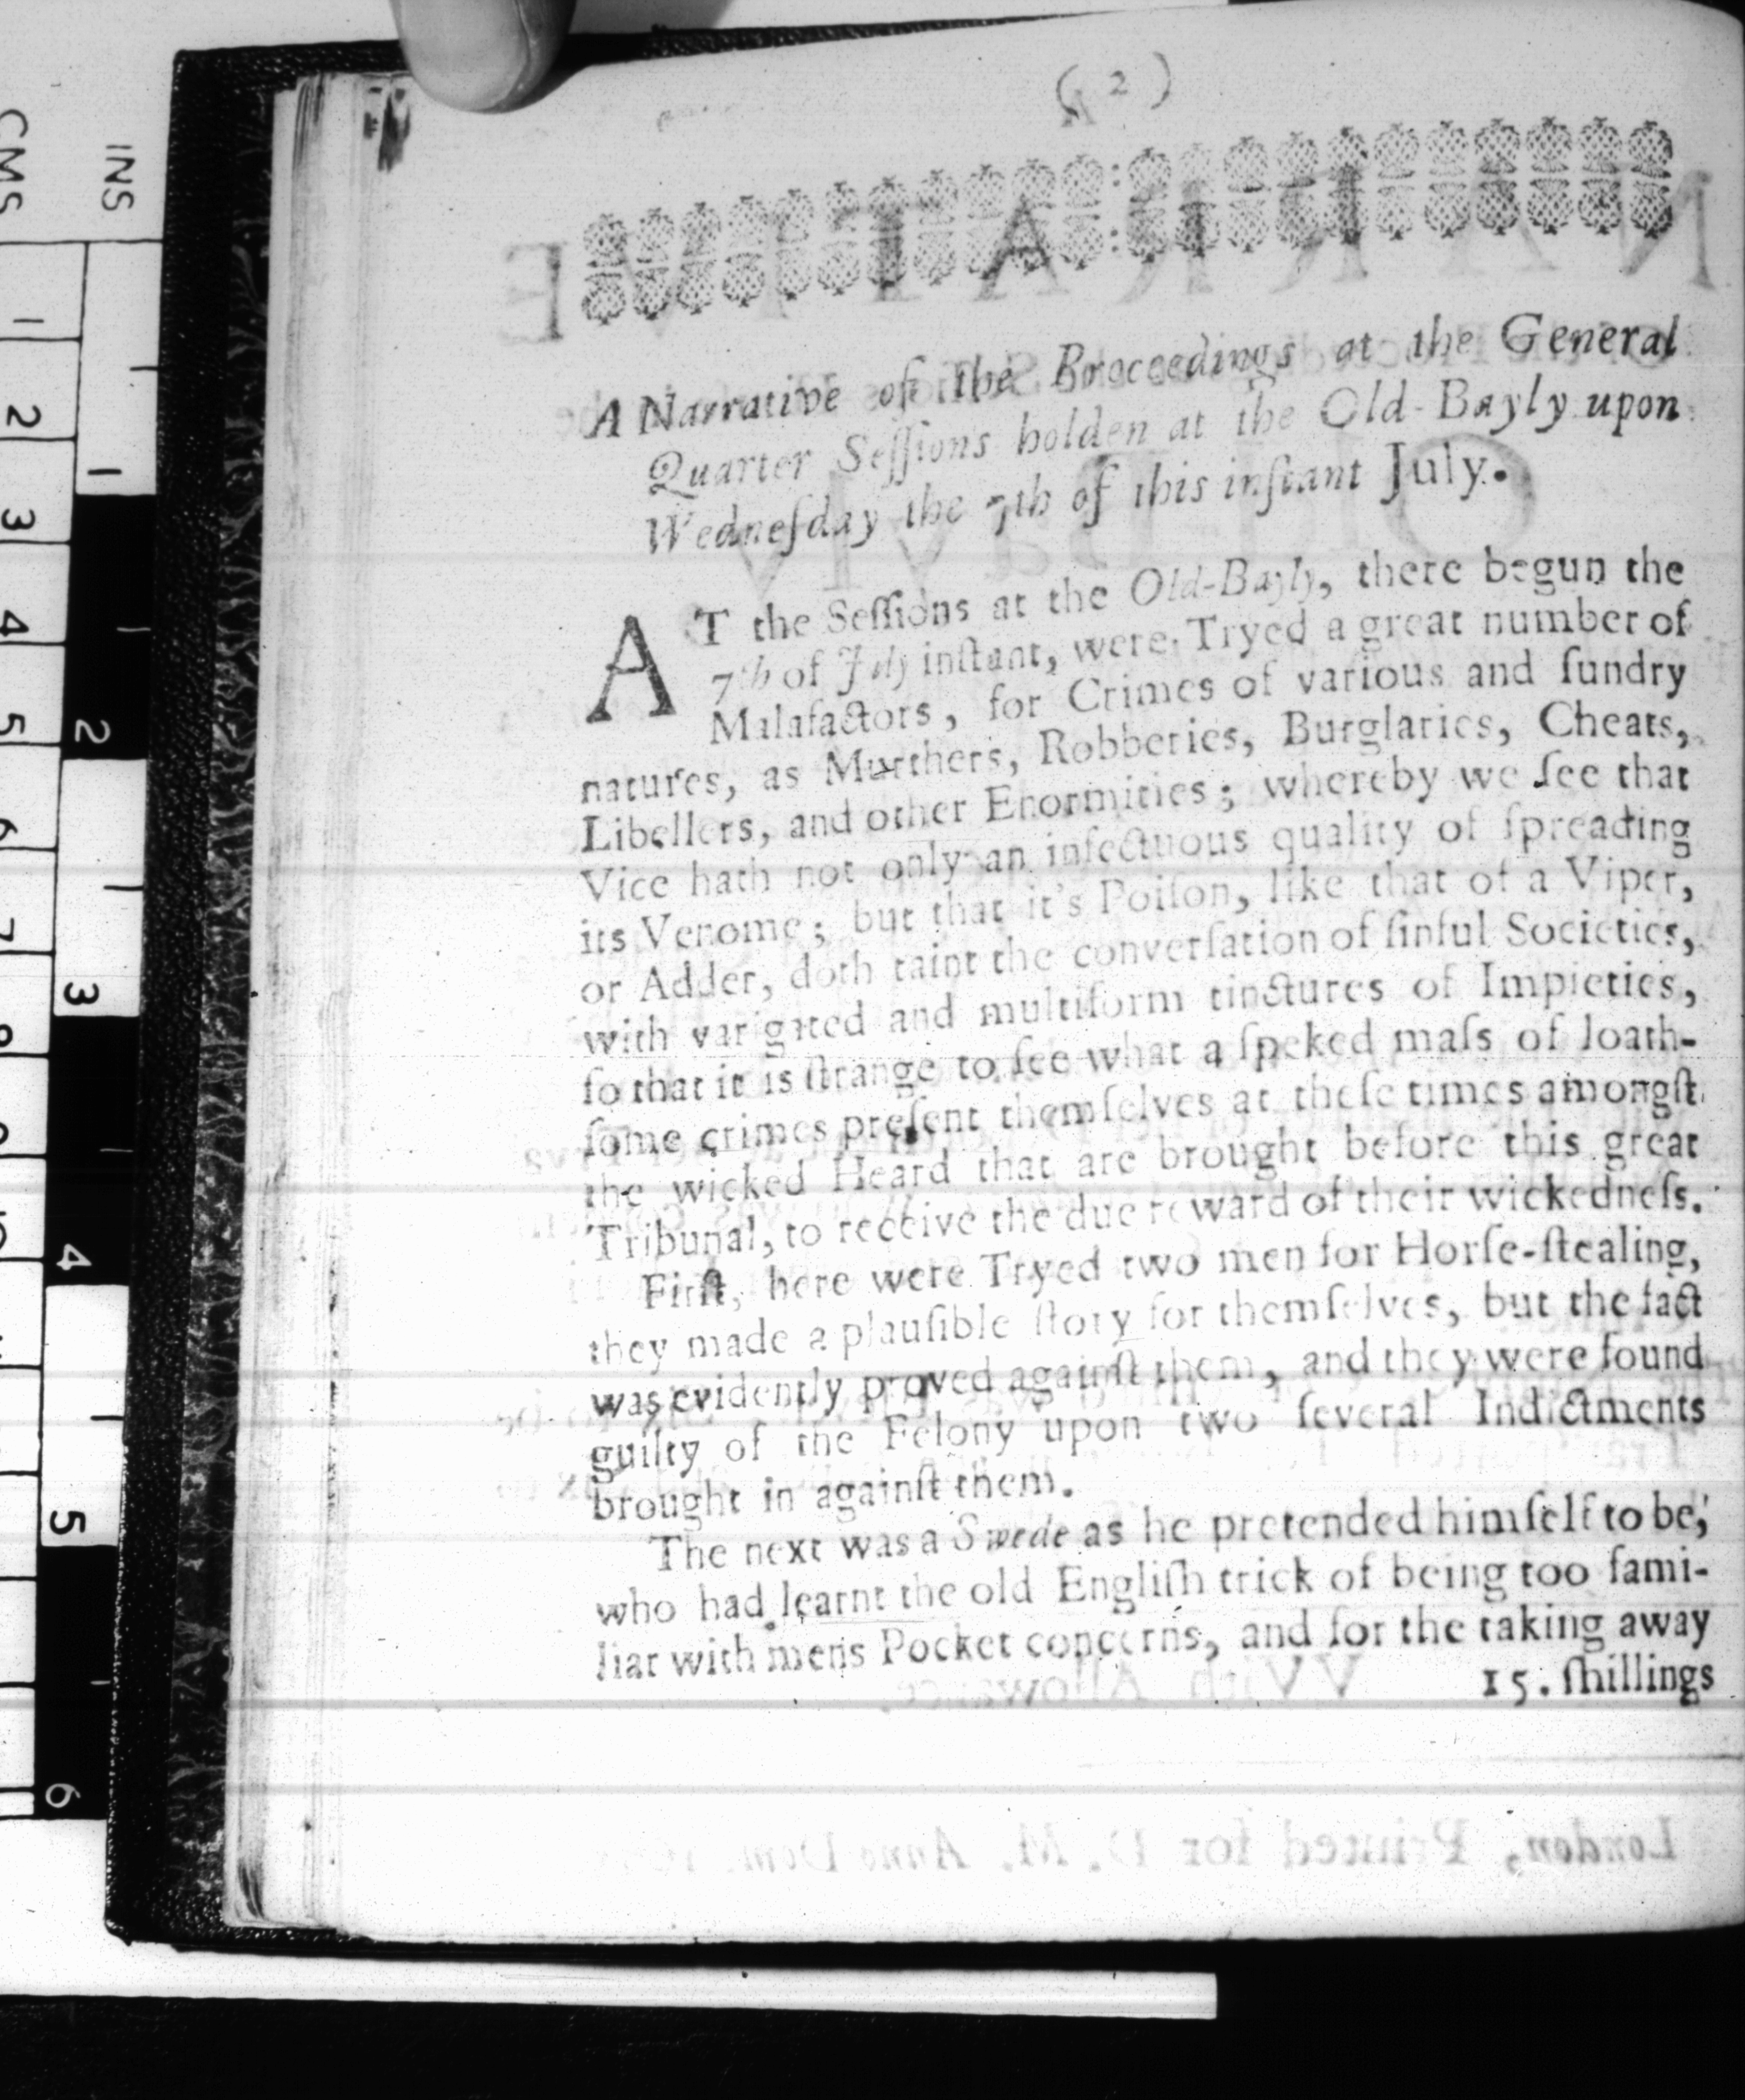 ( 2 )
A Narrative of the Proceedings at the General
Quarter Seſſions holden at the Old-Bayly upon
Wedneſday the 7th of this inſtant July.
AT the Seſſions at the Old-Bayly, there begun the
7th of July inſtant, were Tryed a great number of
Malafactors, for Crimes of various and ſundry
natures, as Murthers, Robberies, Burglaries, Cheats,
Libellers, and other Enormities; whereby we ſee that
Vice hath not only an infectuous quality of ſpreading
its Venome; but that it's Poiſon, like that of a Viper,
or Adder, doth taint the converſation of ſinful Societies,
with varigated and multiform tinctures of Impieties,
ſo that it is ſtrange to ſee what a ſpeked maſs of loath-
ſome crimes preſent themſelves at theſe times amongſt
the wicked Heard that are brought before this great
Tribunal, to receive the due reward of their wickedneſs.
Firſt, here were Tryed two men for Horſe-ſtealing,
they made a plauſible ſtory for themſelves, but the fact
was evidently proved againſt them, and they were found
guilty of the Felony upon two ſeveral Indictments
brought in againſt them.
The next was a Swede as he pretended himſelf to be,
who had learnt the old Engliſh trick of being too fami-
liar with mens Pocket concerns, and for the taking away
15. ſhillings
INS
1
2
3
4
5
6
CMS
1
2
3
4
5
6
7
8
9
10